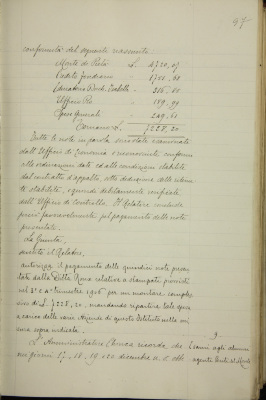 97
conformità del seguente riassunto
Monte di Pietà £. 4720,07
Credito fondiario " 1722,81
" 356,50
Uffici Pii " 189,99
Spese generali " 249,61
Tornano £. 7238,20
Tutte le note in parola sono state esaminate
dall'Ufficio di Economia e riconosciute conformi
alle ordinazioni date ed alle condizioni stabilite
dal contratto d'appalto, sotto deduzione delle ritenu
te stabilite, e quindi debitamente verificate
dall'Ufficio di Controllo. Il Relatore conclude
perciò favorevolmente pel pagamento delle note
presentate.
La Giunta,
sentito il Relatore,
autorizza il pagamento delle suindicate note presen
tate dalla Ditta relative a stampati provvisti
nel 3° e 4° trimestre 1906 per un montare comples
sivo di £. 7238,20, mandando ripartire tale spesa
a carico delle varie Aziende di questo Istituto nella mi
sura sopra indicata.
9
L'Amministratore ricorda che
nei giorni 17, 18, 19 e 20 dicembre u. s. ebbe
esami agli alunni